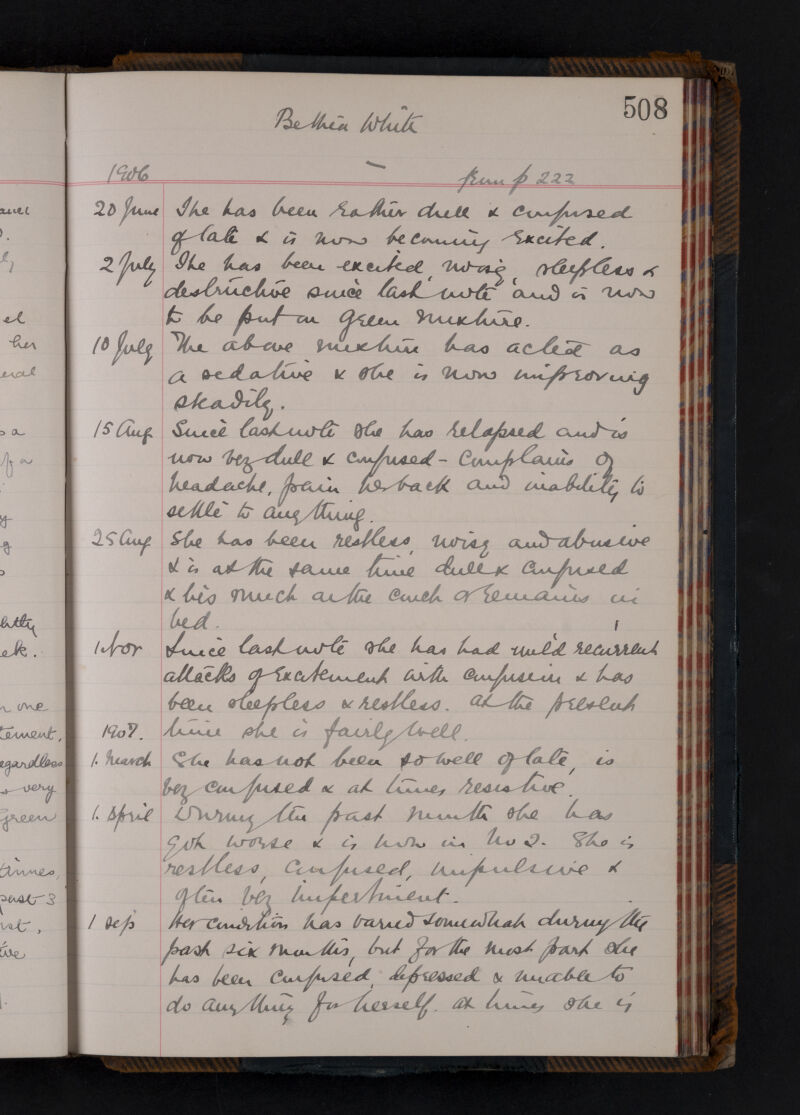 508
Bethia White
1906 from p 222
20 June She has been rather dull & confused
of late & is now becoming excited.
2 July She has been excited, noisy, sleepless &
destructive since last note and is now
to be put on Green mixture.
10 July The above mixture has acted as
a sedative & she is now improving
steadily.
15 Aug Since last note she has relapsed and is
now very dull & confused - complains of
headache, pain her back and inability to
settle to anything.
25 Aug She has been restless, noisy and abusive
& is at the same time dull & confused
& lies much on the couch or remains in
bed.
1 Nov Since last note she has had mild recurrent
attacks of excitement with confusion & has
been sleepless & restless. At the present
1907. time she is fairly well.
1. March She has not been so well of late, is
very confused & at times resistive.
1. April During the past month she has
got worse & is now in No 2. She is
restless, confused, impulsive &
often very impertinent.
1 Sep Her condition has varied somewhat during the
past six months, but for the most part she
has been confused, depressed & unable to
do anything for herself. at times she is
el
her
s a
of a
ek.
n one
tement,
egardless
& very
Green
times,
past 3